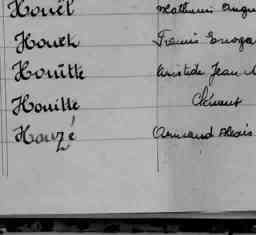 Houël Mathurin Augu
Houeh Francis
Houitte Aristide Jean M
Houitte Clément
Houzé Armand Alexis